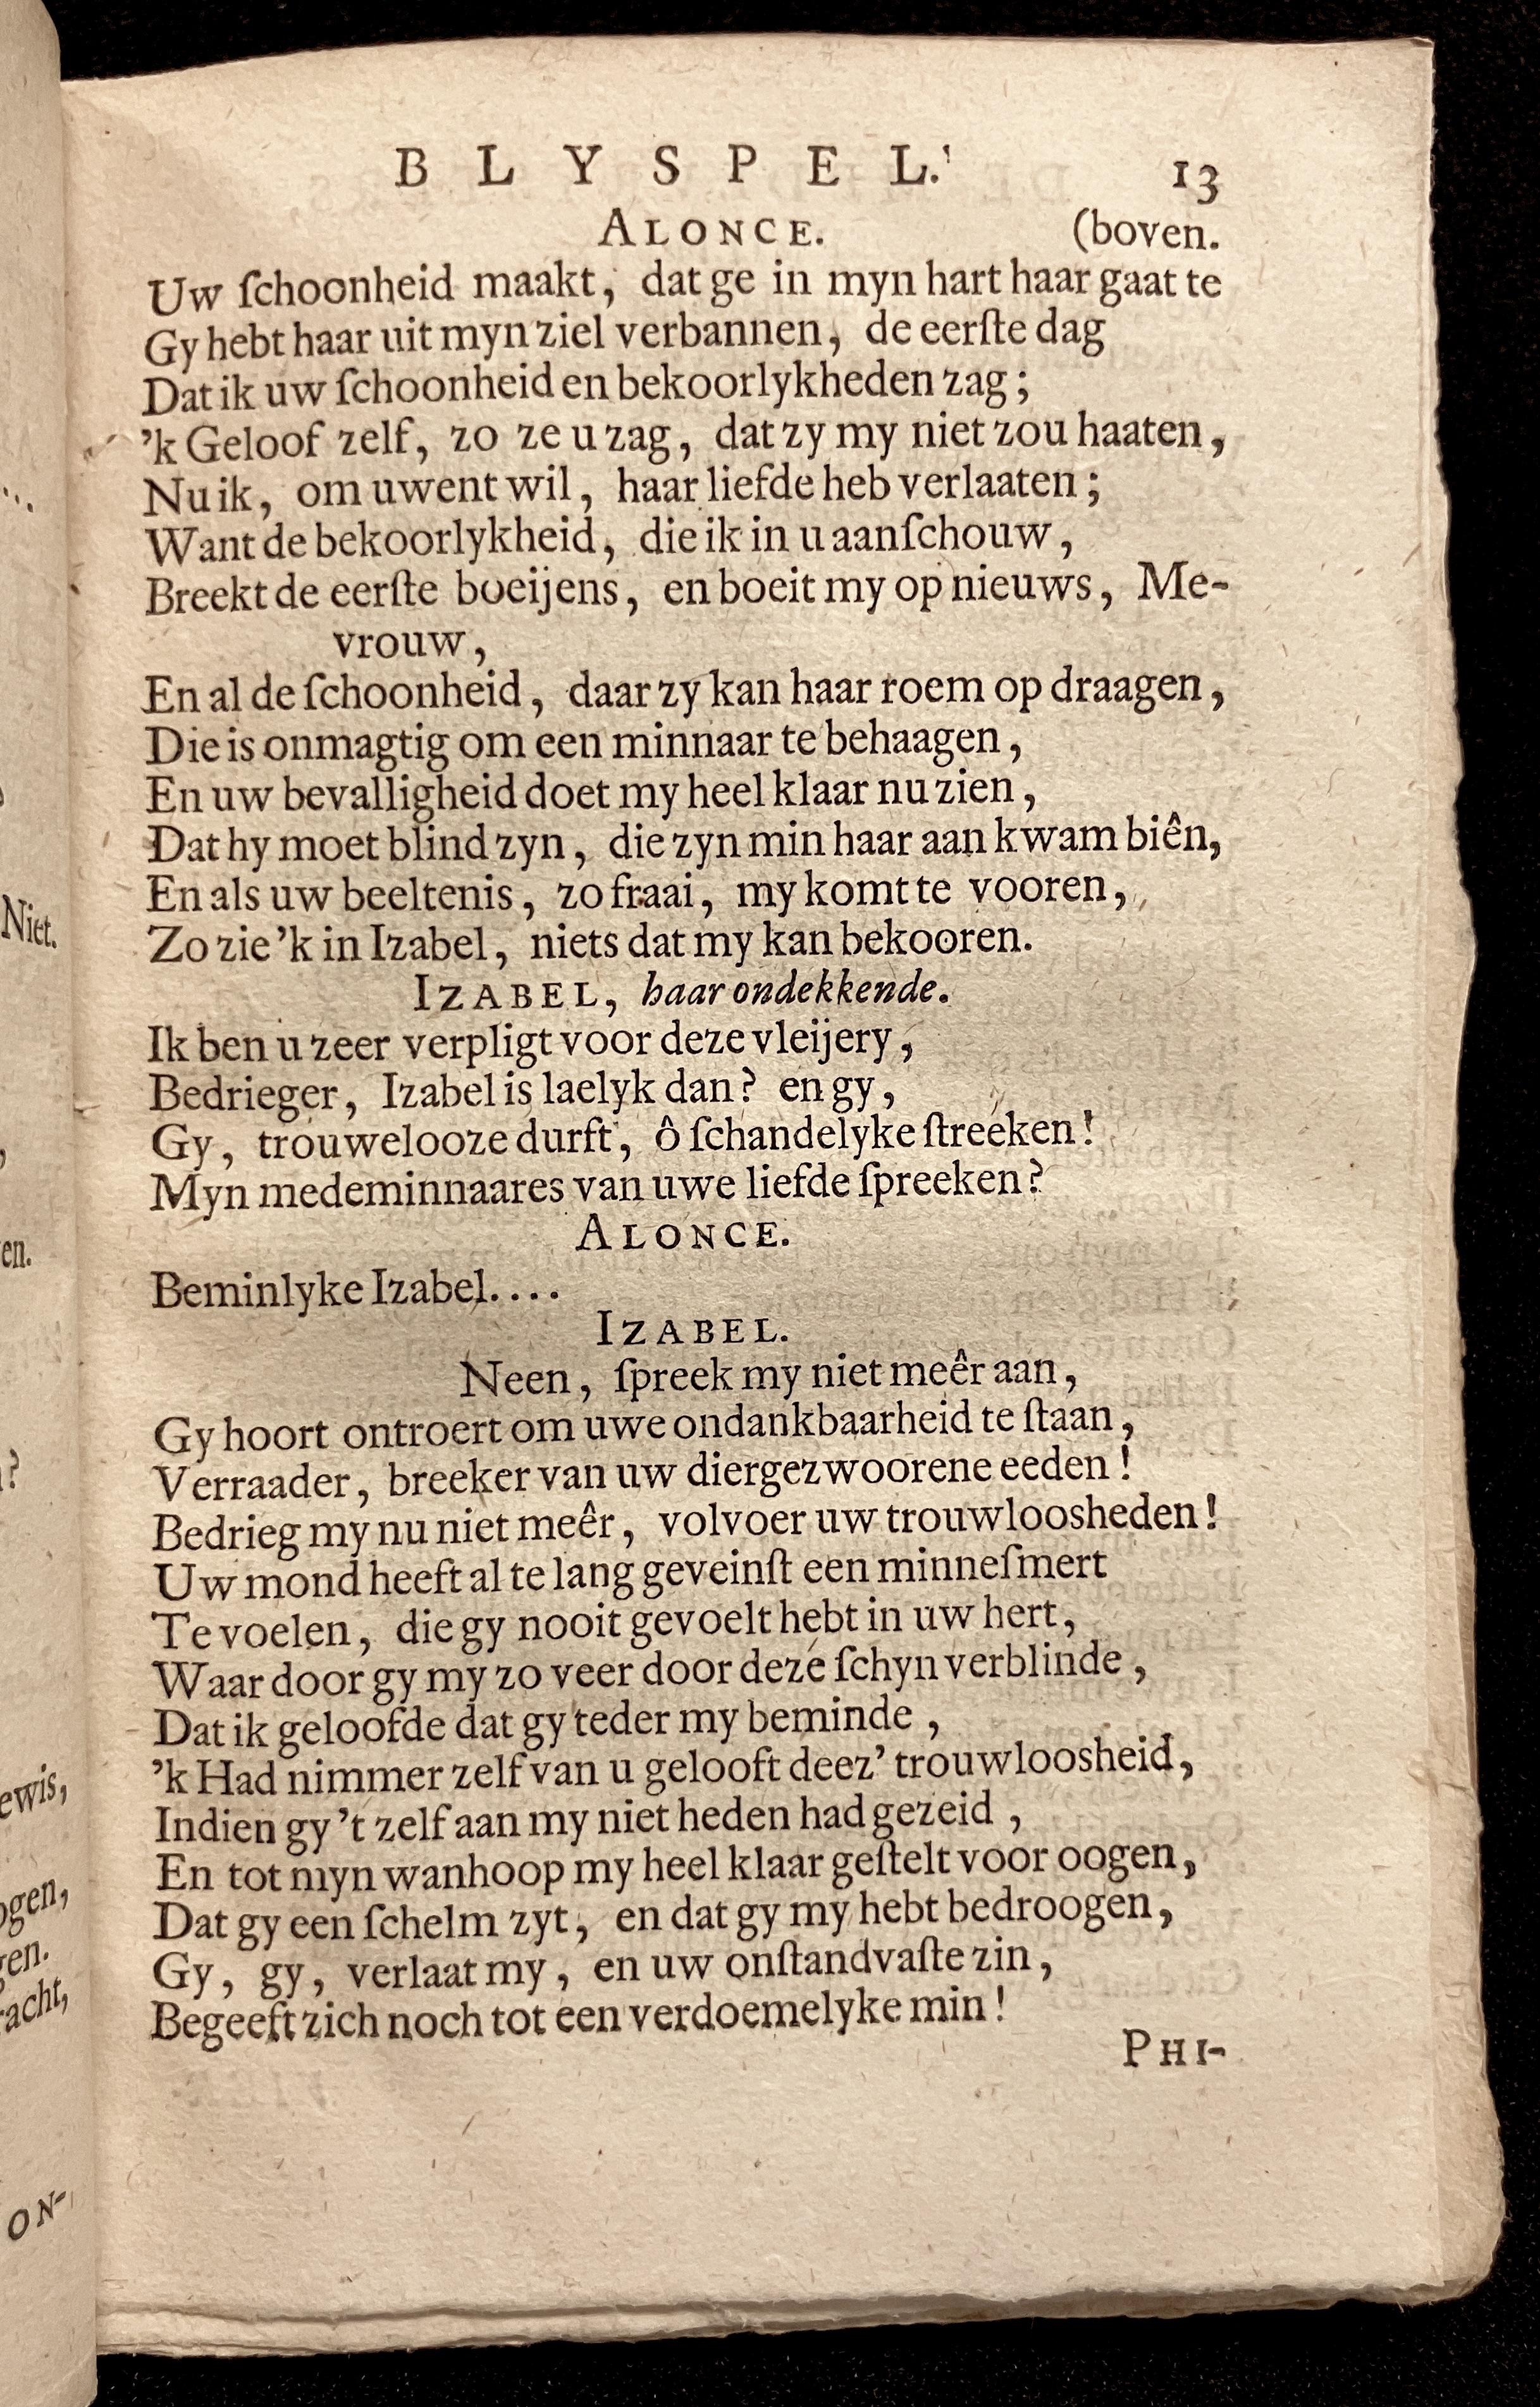 BLYSPEL. 13
ALONCE. (boven.
Uw ſchoonheid maakt, dat ge in myn hart haar gaat te
Gy hebt haar uit myn ziel verbannen, de eerſte dag
Dat ik uw ſchoonheid en bekoorlykheden zag;
'k Geloof zelf, zo ze u zag, dat zy my niet zou haaten,
Nu ik, om uwent wil, haar liefde heb verlaaten;
Want de bekoorlykheid, die ik in u aanſchouw,
Breekt de eerſte boeijens, en boeit my op nieuws, Me-
vrouw,
En al de ſchoonheid, daar zy kan haar roem op draagen,
Die is onmagtig om een minnaar te behaagen,
En uw bevalligheid doet my heel klaar nu zien,
Dat hy moet blind zyn, die zyn min haar aan kwam biên,
En als uw beeltenis, zo fraai, my komt te vooren,
Zo zie 'k in Izabel, niets dat my kan bekooren.
IZABEL, haar ondekkende.
Ik ben u zeer verpligt voor deze vleijery,
Bedrieger, Izabel is laelyk dan? en gy,
Gy, trouwelooze durft, ô ſchandelyke ſtreeken!
Myn medeminnaares van uwe liefde ſpreeken?
ALONCE.
Beminlyke Izabel....
IZABEL.
Neen, ſpreek my niet meêr aan,
Gy hoort ontroert om uwe ondankbaarheid te ſtaan,
Verraader, breeker van uw diergezwoorene eeden!
Bedrieg my nu niet meêr, volvoer uw trouwloosheden!
Uw mond heeft al te lang geveinſt een minneſmert
Te voelen, die gy nooit gevoelt hebt in uw hert,
Waar door gy my zo veer door deze ſchyn verblinde,
Dat ik geloofde dat gy teder my beminde,
'k Had nimmer zelf van u gelooft deez' trouwloosheid,
Indien gy 't zelf aan my niet heden had gezeid,
En tot myn wanhoop my heel klaar geſtelt voor oogen,
Dat gy een ſchelm zyt, en dat gy my hebt bedroogen,
Gy, gy, verlaat my, en uw onſtandvaſte zin,
Begeeft zich noch tot een verdoemelyke min!
PHI-